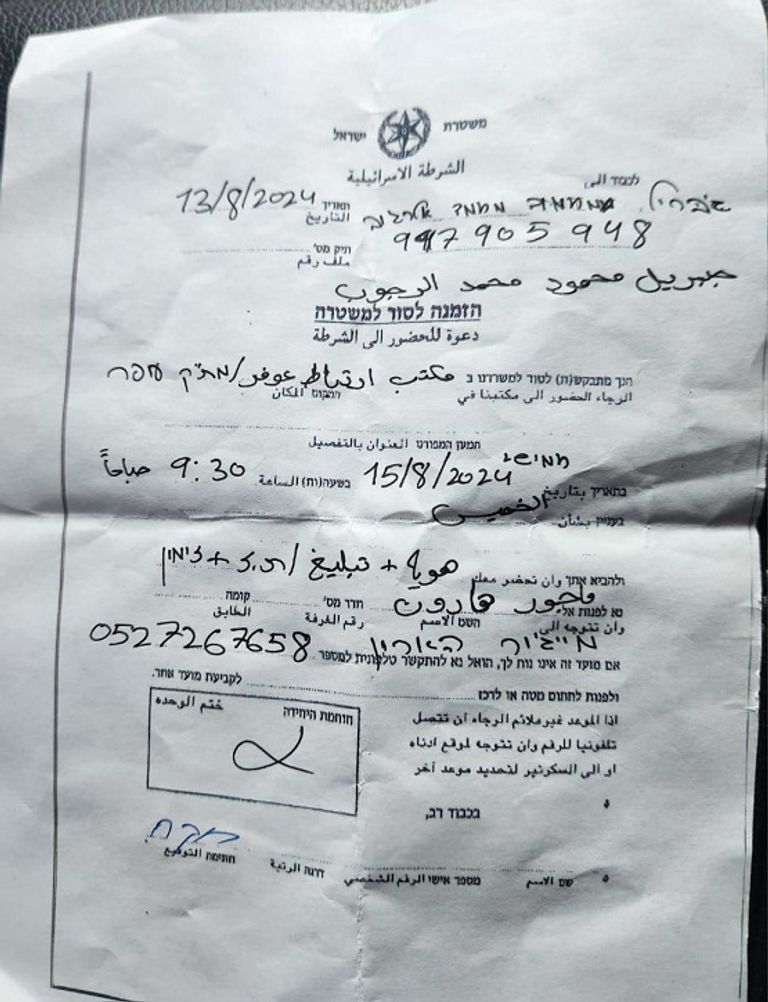 משטרת ישראל
الشرطة الاسرائيلية
לכבוד الى
התאריך التاريخ 13/8/2024
תיק מס' ملف رقم
جبريل محمود محمد الرجوب
הזמנה לסור למשטרה
دعوة للحضور الى الشرطة
הנך מתבקש(ת) לסור למשרדנו ב مكتب ارتباط عوفر/מת״ק עפר
הרجاء الحضور الى مكتبنا في המקום المكان
המען המפורט العنوان بالتفصيل
בתאריך بتاريخ חמישי 15/8/2024 בשעה(ות) الساعة 9:30 صباحاً
الخميس
בענין بشأن
ולהביא אתך وان تحضر معك هوية + تبليغ /ת.ז + זימון
נא לפנות אל ماجور هارون חדר מס' קומה
وان تتوجه الى השם الاسم رقم الغرفة الطابق
מייג'ור הארון
אם מועד זה אינו נוח לך, הואל נא להתקשר טלפונית למספר 0527267658
ולפנות לחתום מטה או לרכז לקביעת מועד אחר.
اذا الموعد غير ملائم الرجاء ان تتصل
تلفونيا للرقم وان تتوجه لموقع ادناه
او الى السكرتير لتحديد موعد آخر
חותמת היחידה ختم الوحده
בכבוד רב,
שם الاسم מספר אישי الرقم الشخصي דרגה الرتبة חתימה التوقيع